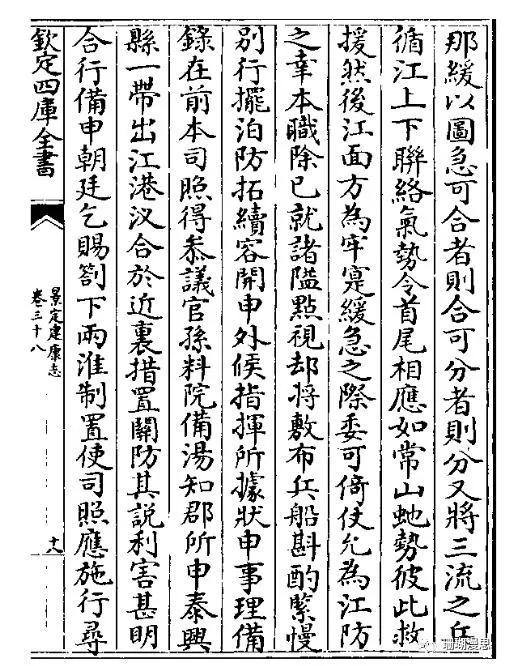 那緩以圖急可合者則合可分者則分又將三流之兵
循江上下聯絡氣勢令首尾相應如常山虵勢彼此救
援然後江面方為牢寔緩急之際委可倚仗允為江防
之幸本職除已就諸隘點視却將敷布兵船斟酌緊慢
别行擺泊防拓續容開申外候指揮所據狀申事理備
錄在前本司照得叅議官孫料院備湯知郡所申泰興
縣一帶出江港汊合於近裏措置關防其說利害甚明
合行備申朝廷乞賜劄下兩淮制置使司照應施行尋
欽定四庫全書
景定建康志
卷三十八
十八
珊瑚漫思